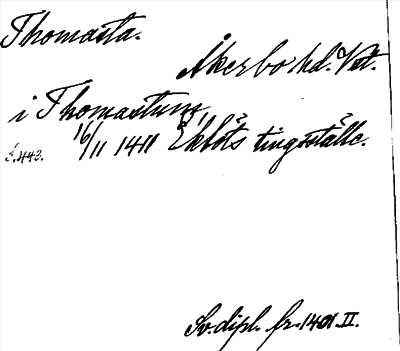 Thomasta.
Åkerbo hd. Vst.
i Thomastum,
16/11 1411 Eklöts tingställe.
s. 443.
Sv. dipl. fr. 1401 II.